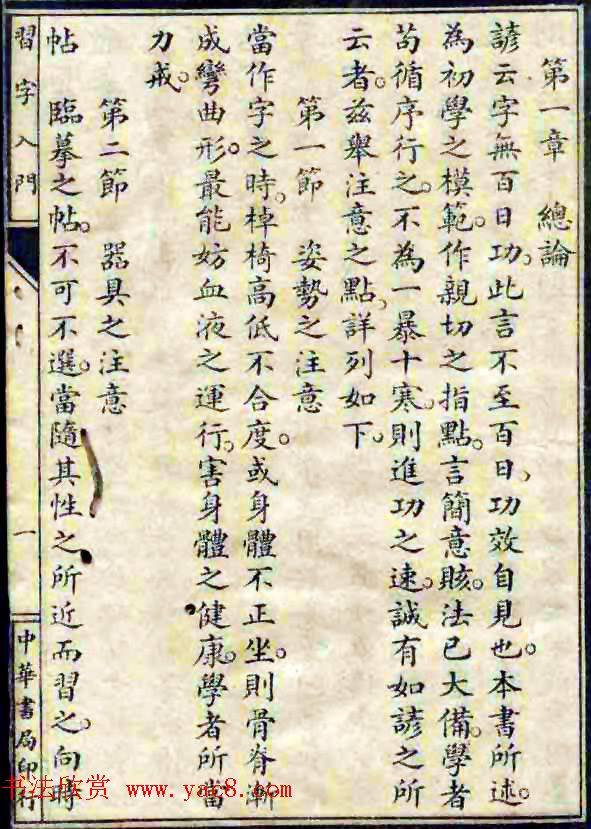 第一章　總論
諺云字無百日功。此言不至百日、功效自見也。本書所述。
為初學之模範。作親切之指點。言簡意賅。法已大備。學者
苟循序行之。不為一暴十寒。則進功之速。誠有如諺之所
云者。茲舉注意之點、詳列如下。
第一節　姿勢之注意
當作字之時。棹椅高低不合度。或身體不正坐。則骨脊漸
成彎曲形。最能妨血液之運行。害身體之健康。學者所當
力戒。
第二節　器具之注意
帖　臨摹之帖。不可不選。當隨其性之所近而習之。向時
習字入門
一
中華書局印行
书法欣赏 www.yac8.com